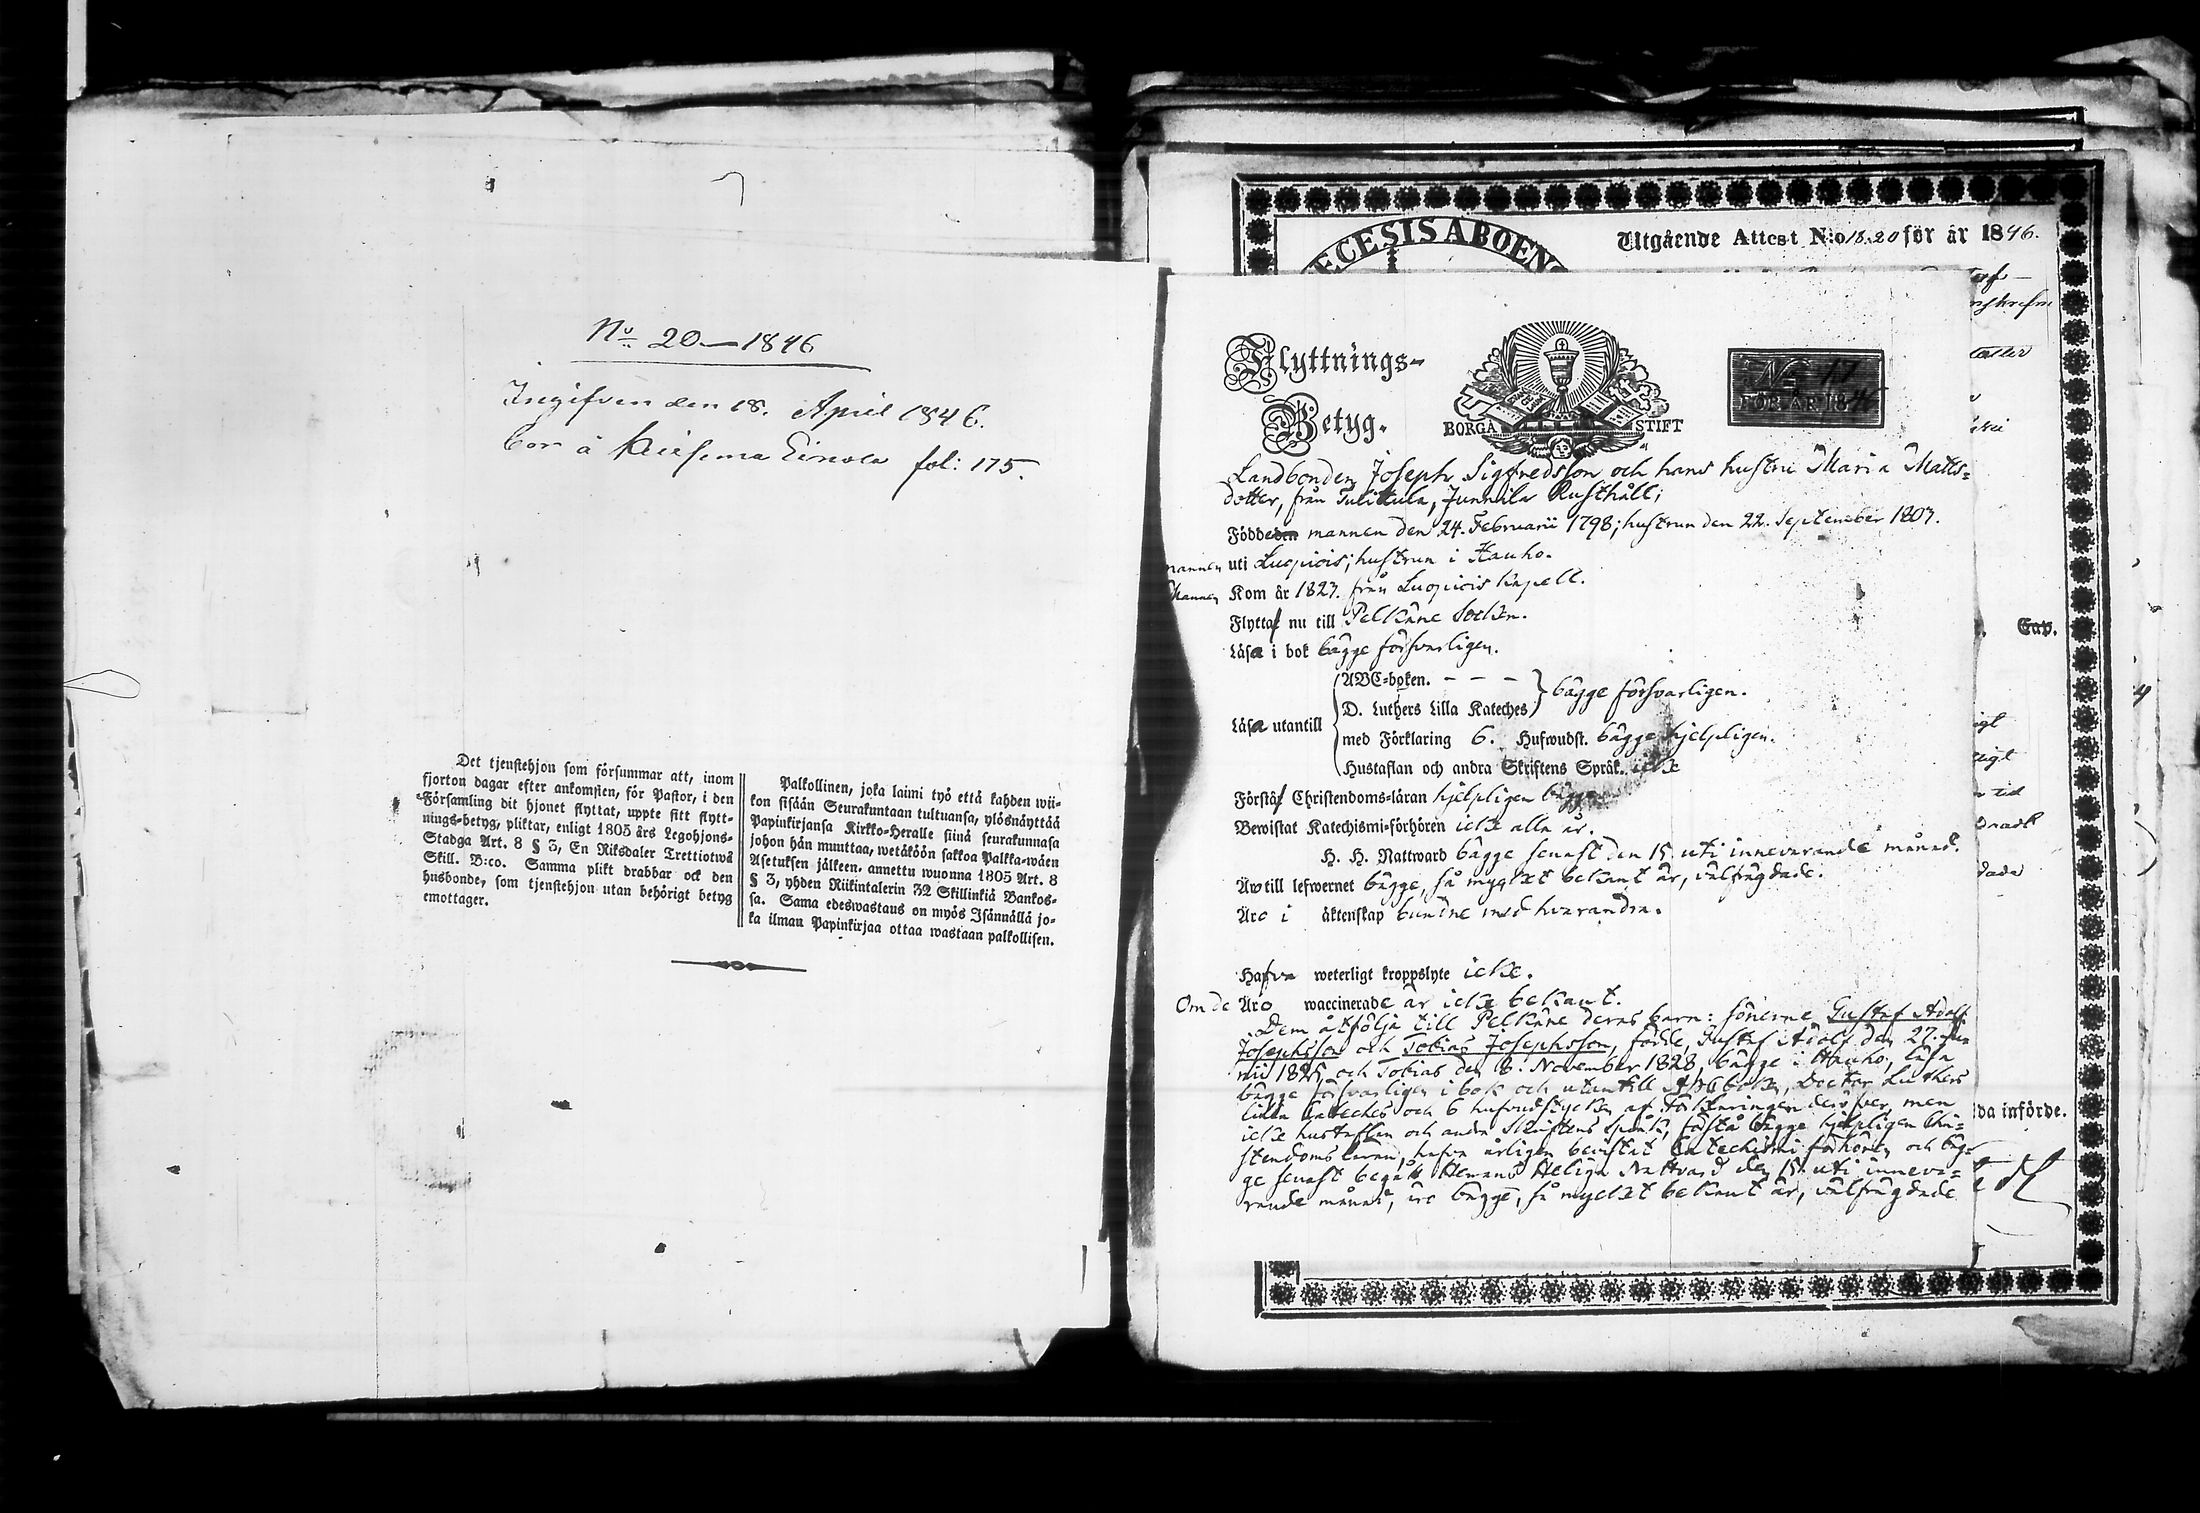 No 20 — 1846
Ingifven den 18. April 1846.
bor å fol: 175.
Det tjenstehjon som försummar att, inom
fjorton dagar efter ankomsten, för Pastor, i den
Församling dit hjonet flyttat, uppte sitt flytt-
nings-betyg, pliktar, enligt 1805 års Legohjons-
Stadga Art. 8 § 3, En Riksdaler Trettiotwå
Skill. B:co. Samma plikt drabbar ock den
husbonde, som tjenstehjon utan behörigt betyg
emottager.
Palkollinen, joka laimi lyö että kahden wii-
kon sisään Seurakuntaan tultuansa, ylösnäyttää
Papinkirjansa Kirkko-Heralle siinä seurakunnasa
johon hän muuttaa, wetäköön sakkoa Palkka-wäen
Asetuksen jälkeen, annettu wuonna 1805 Art. 8
§ 3, yhden Riikintalerin 32 Skillinkiä Bankos-
sa. Sama edeswastaus on myös Isännällä jo-
ka ilman Papinkirjaa ottaa wastaan palkollisen.
ECESIS ABOEN
Utgående Attest N:o 18.20 för år 1846.
Flyttnings-
Betyg.
BORGÅ STIFT
No 17
FÖR ÅR 184
Landbonden Joseph Sigfredsson och hans hustru Maria Matts-
dotter, från Tulittula, Junnila Rusthåll;
Födde den mannen den 24. Februarii 1798; hustrun den 22. September 1807.
mannen uti Luopiois; hustrun i Hauho.
Mannen Kom år 1827. från Luopiois kapell.
Flytta nu till Pelkäne Socken.
Läsa i bok bägge försvarligen.
ABC-boken. - - -
D. Luthers Lilla Kateches
bägge försvarligen.
Läsa utantill
med Förklaring 6. Hufwudst. bägge hjelpligen.
Hustaflan och andra Skriftens Språk. icke
Förstå Christendoms-läran hjelpligen bägge
Bewistat Katechismi-förhören icke alla år.
H. H. Nattward bägge senast den 15. uti innevarande månad.
Äwtill lefwernet bägge, så mycket bekant är, välfrägdade.
Äro i äktenskap bundne med hvarandra.
Hafva weterligt kroppslyte icke.
Om de Äro waccinerade är icke bekant.
Dem åtfölja till Pelkäne deras barn: sönerne Gustaf Adolf
Josephsson och Tobias Josephsson, födde, Gustaf Adolf den 27. Ju
nii 1825 och Tobias den 8. November 1828, bägge i Hauho, läsa
bägge försvarligen i bok och utantill Abcboken, Doctor Luthers
lilla Cateches och 6 hufvudstycken af Förklaringen deröfver, men
icke hustaflan och andra Skriftens språk, förstå bägge hjelpligen Chri-
stendoms läran, hafva årligen bevistat Catechismi förhören och bäg-
ge senast begått Herrans Heliga Nattvard den 15. uti inneva-
rande månad, äro bägge, så mycket bekant är, välfrägdade
Cap.
da införde.